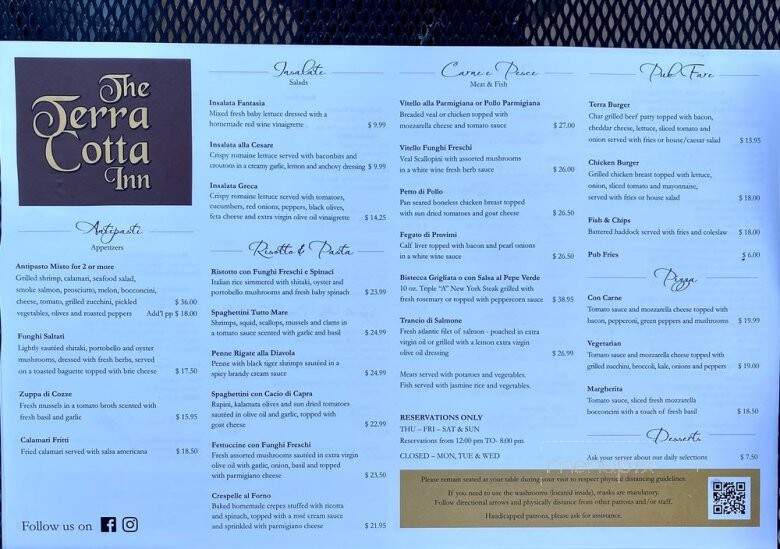 The
Terra
Cotta
Inn
Antipasti
Appetizers
Antipasto Misto for 2 or more
Grilled shrimp, calamari, seafood salad,
smoke salmon, prosciutto, melon, bocconcini,
cheese, tomato, grilled zucchini, pickled $ 36.00
vegetables, olives and roasted peppers Add'l pp $ 18.00
Funghi Saltati
Lightly sautéed shitaki, portobello and oyster
mushrooms, dressed with fresh herbs, served
on a toasted baguette topped with brie cheese $ 17.50
Zuppa di Cozze
Fresh mussels in a tomato broth scented with
fresh basil and garlic $ 15.95
Calamari Fritti
Fried calamari served with salsa americana $ 18.50
Follow us on
Insalate
Salads
Insalata Fantasia
Mixed fresh baby lettuce dressed with a
homemade red wine vinaigrette $ 9.99
Insalata alla Cesare
Crispy romaine lettuce served with baconbits and
croutons in a creamy garlic, lemon and anchovy dressing $ 9.99
Insalata Greca
Crispy romaine lettuce served with tomatoes,
cucumbers, red onions, peppers, black olives,
feta cheese and extra virgin olive oil vinaigrette $ 14.25
Risotto & Pasta
Ristotto con Funghi Freschi e Spinaci
Italian rice simmered with shitaki, oyster and
portobello mushrooms and fresh baby spinach $ 23.99
Spaghettini Tutto Mare
Shrimps, squid, scallops, mussels and clams in
a tomato sauce scented with garlic and basil $ 24.99
Penne Rigate alla Diavola
Penne with black tiger shrimps sautéed in a
spicy brandy cream sauce $ 24.99
Spaghettini con Cacio di Capra
Rapini, kalamata olives and sun dried tomatoes
sautéed in olive oil and garlic, topped with
goat cheese $ 22.99
Fettuccine con Funghi Freschi
Fresh assorted mushrooms sautéed in extra virgin
olive oil with garlic, onion, basil and topped
with parmigiano cheese $ 23.50
Crespelle al Forno
Baked homemade crepes stuffed with ricotta
and spinach, topped with a rosé cream sauce
and sprinkled with parmigiano cheese $ 21.95
Carne e Pesce
Meat & Fish
Vitello alla Parmigiana or Pollo Parmigiana
Breaded veal or chicken topped with
mozzarella cheese and tomato sauce $ 27.00
Vitello Funghi Freschi
Veal Scallopini with assorted mushrooms
in a white wine fresh herb sauce $ 26.00
Petto di Pollo
Pan seared boneless chicken breast topped
with sun dried tomatoes and goat cheese $ 26.50
Fegato di Provimi
Calf' liver topped with bacon and pearl onions
in a white wine sauce $ 26.50
Bistecca Grigliata o con Salsa al Pepe Verde
10 oz. Triple "A" New York Steak grilled with
fresh rosemary or topped with peppercorn sauce $ 38.95
Trancio di Salmone
Fresh atlantic filet of salmon - poached in extra
virgin oil or grilled with a lemon extra virgin
olive oil dressing $ 26.99
Meats served with potatoes and vegetables.
Fish served with jasmine rice and vegetables.
RESERVATIONS ONLY
THU – FRI – SAT & SUN
Reservations from 12:00 pm TO- 8:00 pm
CLOSED – MON, TUE & WED
Pub Fare
Terra Burger
Char grilled beef patty topped with bacon,
cheddar cheese, lettuce, sliced tomato and
onion served with fries or house/caesar salad $ 15.95
Chicken Burger
Grilled chicken breast topped with lettuce,
onion, sliced tomato and mayonnaise,
served with fries or house salad $ 18.00
Fish & Chips
Battered haddock served with fries and coleslaw $ 18.00
Pub Fries $ 6.00
Pizza
Con Carne
Tomato sauce and mozzarella cheese topped with
bacon, pepperoni, green peppers and mushrooms $ 19.99
Vegetarian
Tomato sauce and mozzarella cheese topped with
grilled zucchini, broccoli, kale, onions and peppers $ 19.00
Margherita
Tomato sauce, sliced fresh mozzarella
bocconcini with a touch of fresh basil $ 18.50
Desserts
Ask your server about our daily selections $ 7.50
Please remain seated at your table during your visit to respect physical distancing guidelines.
If you need to use the washrooms (located inside), masks are mandatory.
Follow directional arrows and physically distance from other patrons and/or staff.
Handicapped patrons, please ask for assistance.